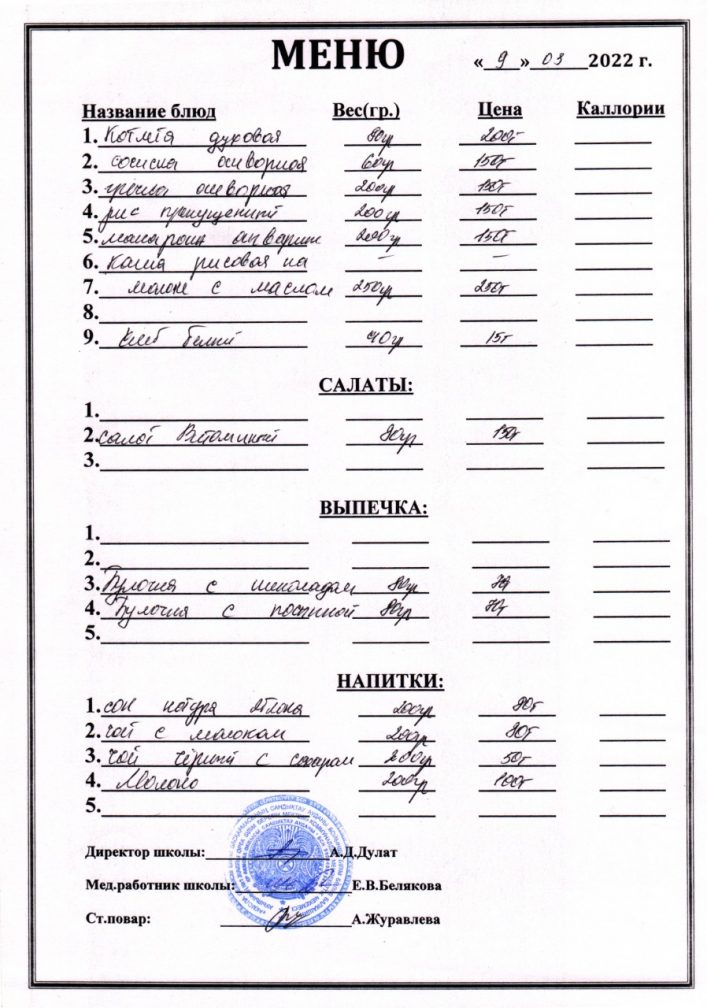 МЕНЮ «9» 03 2022 г.
Название блюд Вес(гр.) Цена Каллории
1. Котлета духовая 80гр 200т
2. сосиска отворная 60гр 150т
3. гречка отворная 200гр 150т
4. рис припущенный 200гр 150т
5. макарон отварные 200гр 150т
6. Каша рисовая на – –
7. молоке с маслом 250гр 250т
8.
9. Хлеб белый 40гр 15т
САЛАТЫ:
1.
2. салат Витаминный 80гр 150т
3.
ВЫПЕЧКА:
1.
2.
3. Булочка с шоколадам 80гр 70т
4. Булочка с 80гр 70т
5.
НАПИТКИ:
1. сок 200гр 80т
2. чай с молоком 200гр 80т
3. чай чёрный с сахаром 200гр 50т
4. Молоко 200гр 100т
5.
Директор школы: А.Д.Дулат
Мед.работник школы: Е.В.Белякова
Ст.повар: А.Журавлева